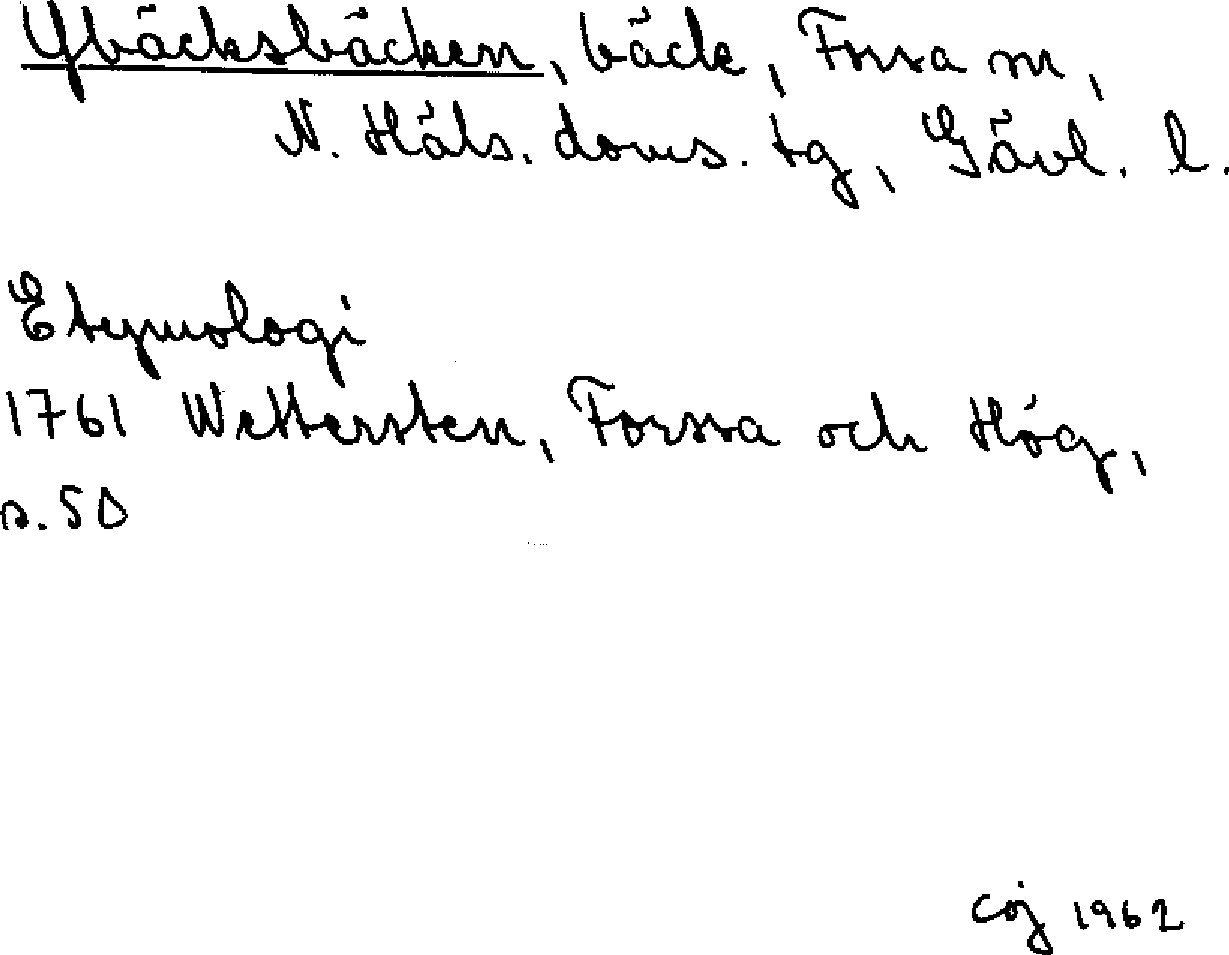 Ybäcksbäcken, bäck, Forsa sn,
N. Häls. doms. tg, Gävl. l.
Etymologi
1761 Wettersten, Forssa och Hög,
s. 50
Coj 1962